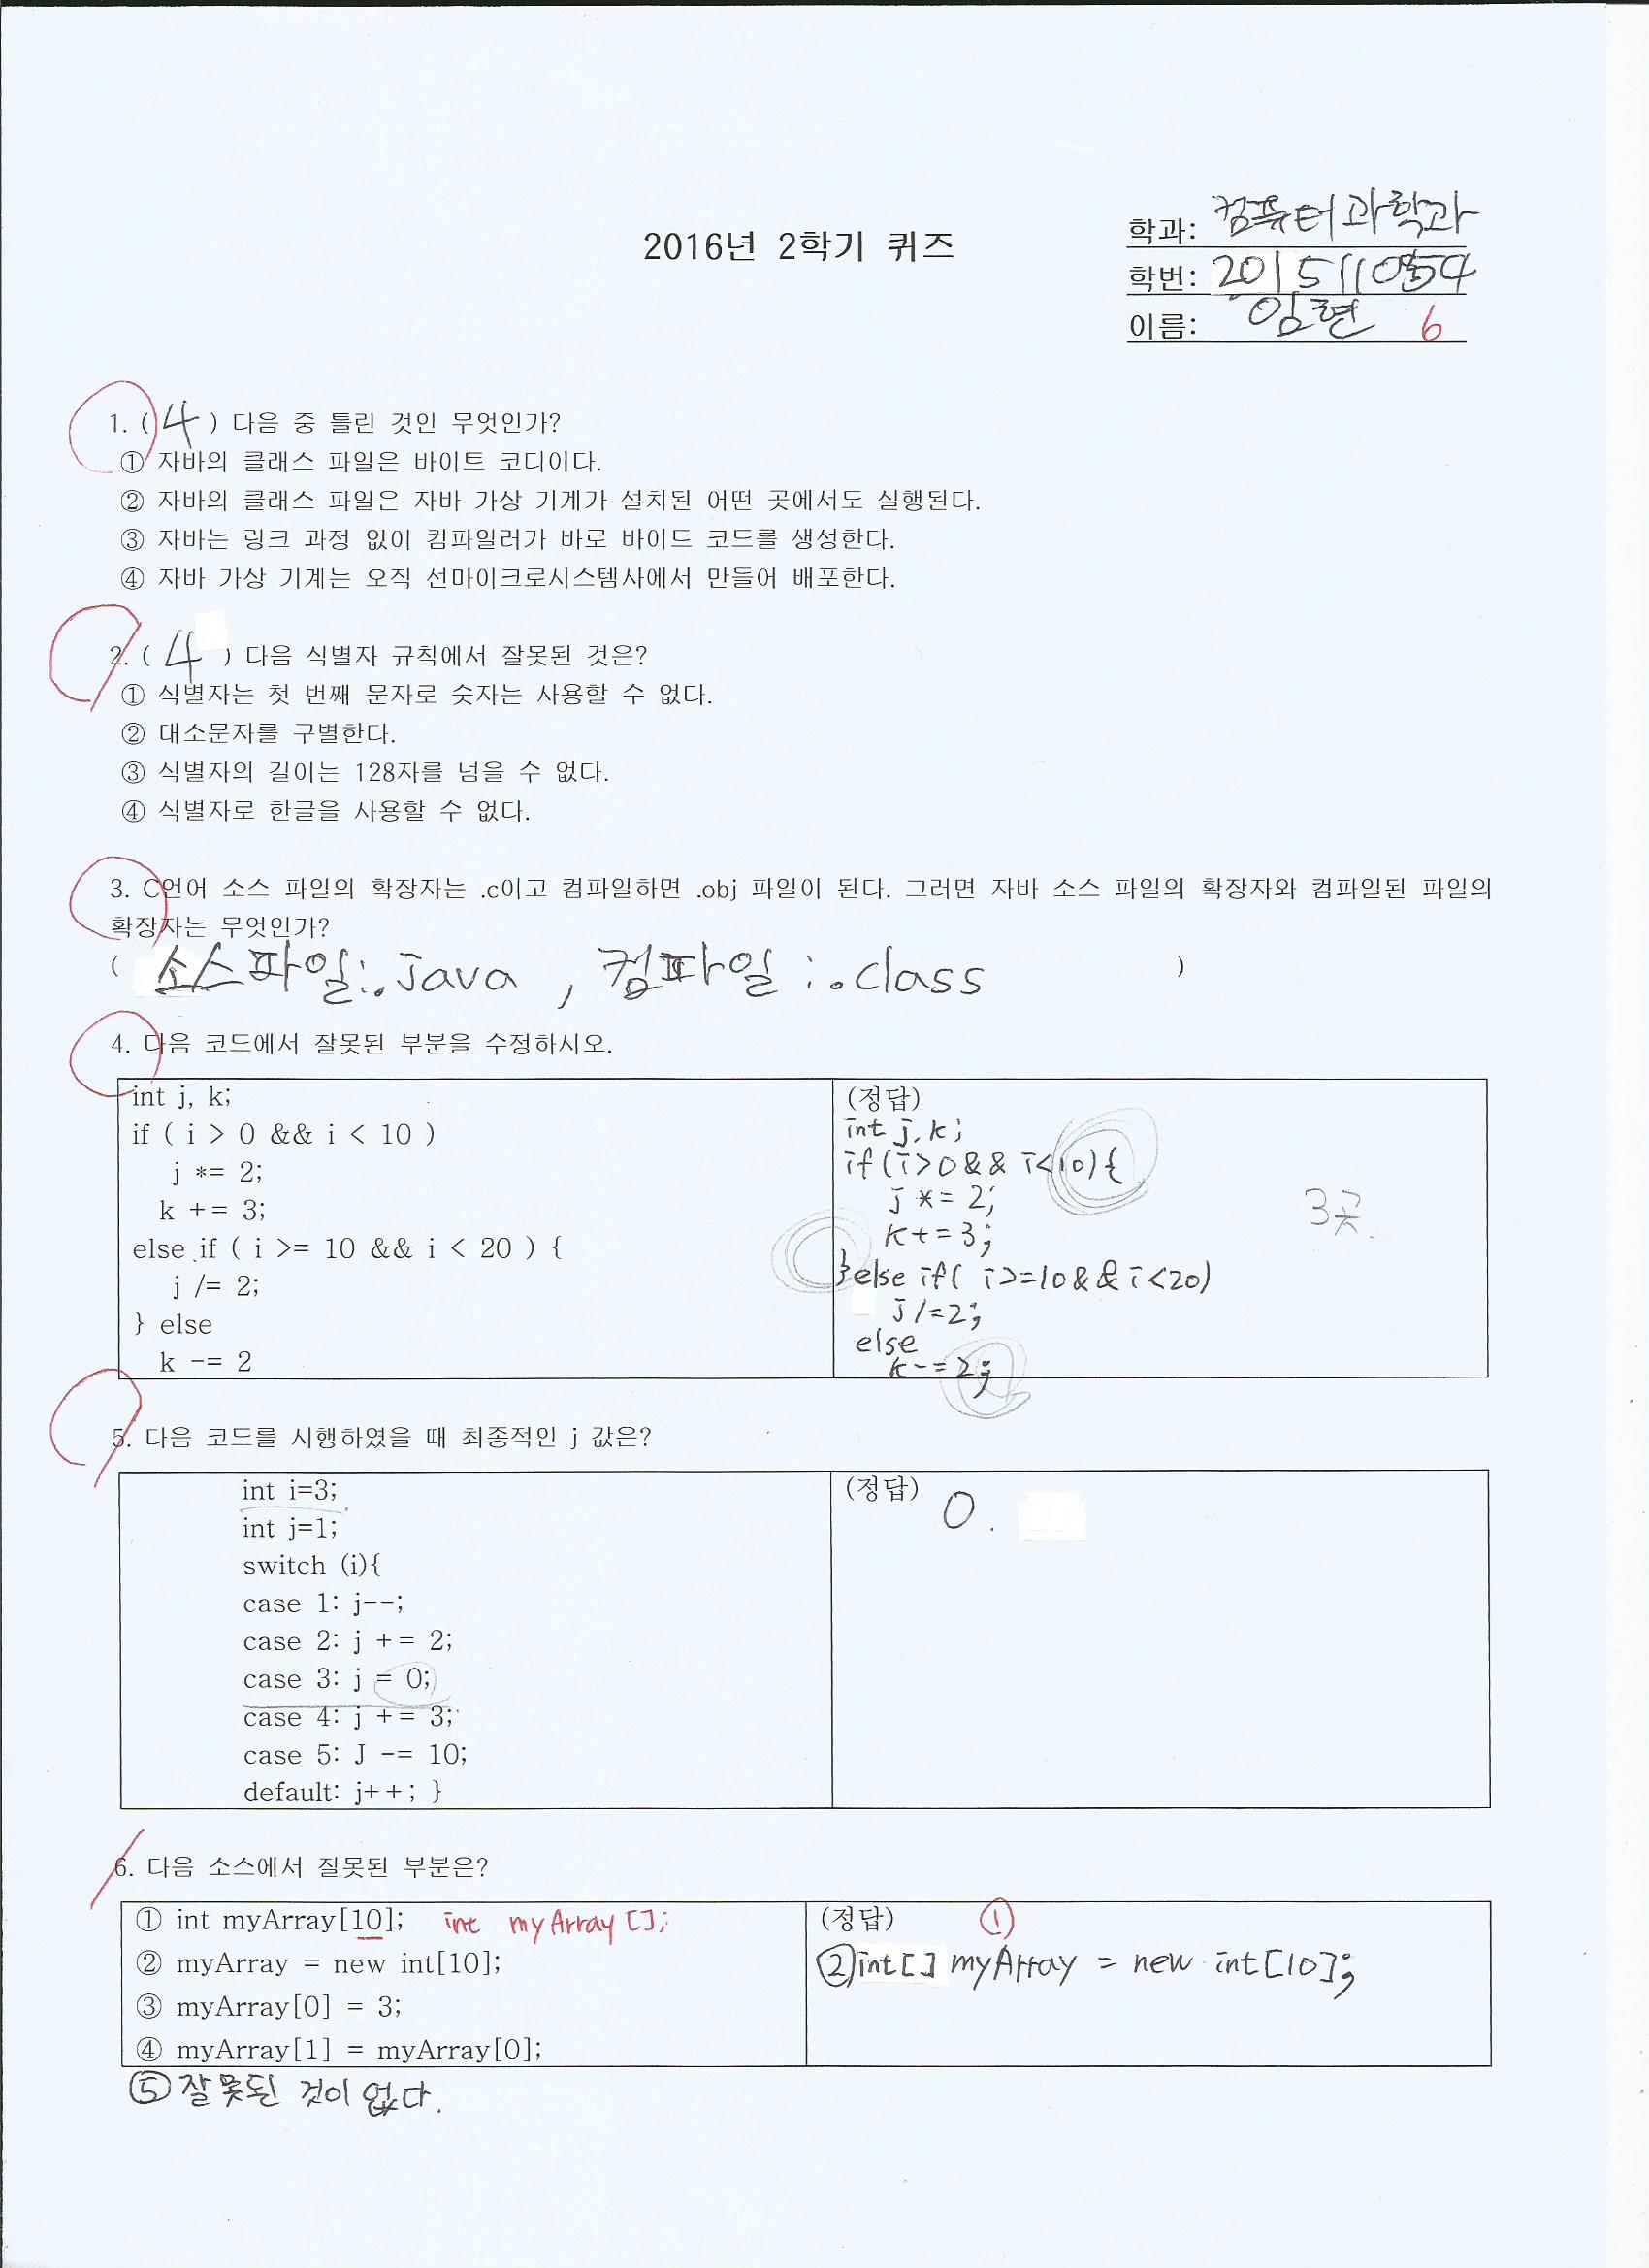 2016년 2학기 퀴즈
학과: 컴퓨터과학과
학번:
이름: 임현 6
1. ( 4 ) 다음 중 틀린 것인 무엇인가?
① 자바의 클래스 파일은 바이트 코디이다.
② 자바의 클래스 파일은 자바 가상 기계가 설치된 어떤 곳에서도 실행된다.
③ 자바는 링크 과정 없이 컴파일러가 바로 바이트 코드를 생성한다.
④ 자바 가상 기계는 오직 선마이크로시스템사에서 만들어 배포한다.
2. ( 4 ) 다음 식별자 규칙에서 잘못된 것은?
① 식별자는 첫 번째 문자로 숫자는 사용할 수 없다.
② 대소문자를 구별한다.
③ 식별자의 길이는 128자를 넘을 수 없다.
④ 식별자로 한글을 사용할 수 없다.
3. C언어 소스 파일의 확장자는 .c이고 컴파일하면 .obj 파일이 된다. 그러면 자바 소스 파일의 확장자와 컴파일된 파일의
확장자는 무엇인가?
( 소스파일:.java , 컴파일 :.class )
4. 다음 코드에서 잘못된 부분을 수정하시오.
int j, k;
if ( i > 0 && i < 10 )
j *= 2;
k += 3;
else if ( i >= 10 && i < 20 ) {
j /= 2;
} else
k -= 2
(정답)
int j, k;
if(i>0&& i<10){
j *= 2;
k+=3;
}else if( i>=10&&i<20)
j/=2;
else
k-=2;
3곳.
5. 다음 코드를 시행하였을 때 최종적인 j 값은?
int i=3;
int j=1;
switch (i){
case 1: j--;
case 2: j += 2;
case 3: j = 0;
case 4: j += 3;
case 5: J -= 10;
default: j++; }
(정답) 0.
6. 다음 소스에서 잘못된 부분은?
① int myArray[10]; int myArray[];
② myArray = new int[10];
③ myArray[0] = 3;
④ myArray[1] = myArray[0];
(정답) ①
② int[] myArray = new int[10];
⑤ 잘못된 것이 없다.